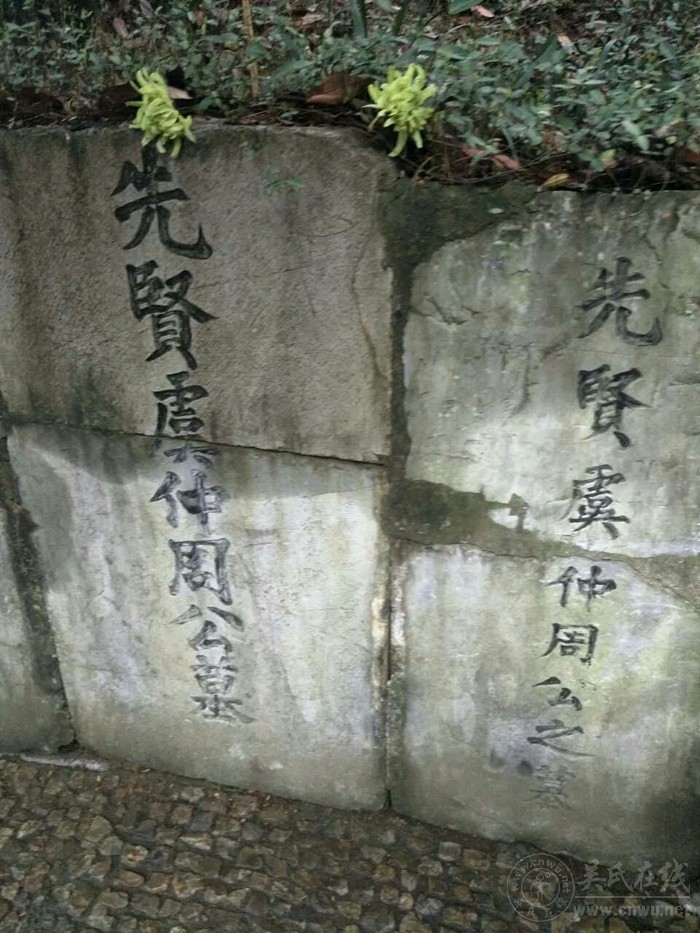 先賢虞仲周公墓
先賢虞仲周公之墓
吴氏在线
www.cnwu.net